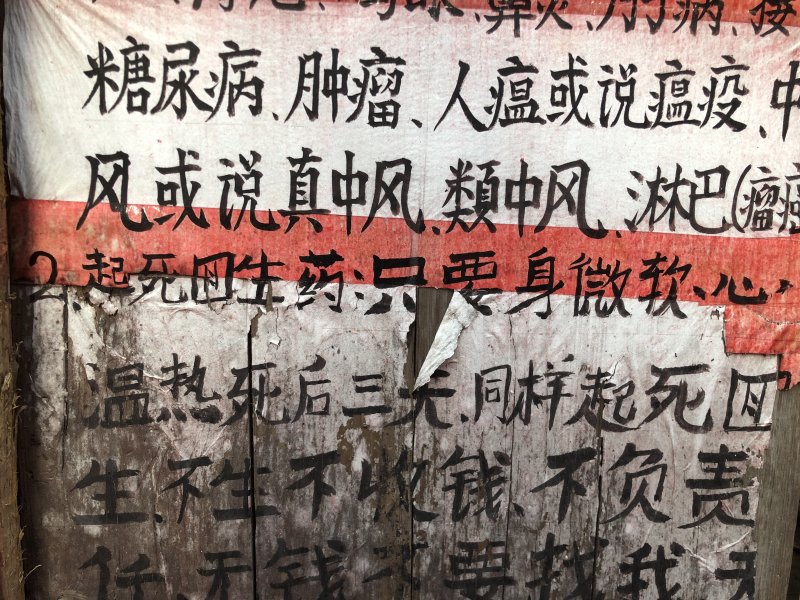 鼻炎、肝病、接
糖尿病、肿瘤、人瘟或说瘟疫、中
风或说真中风、類中风、淋巴(瘤癌
2.起死回生药:只要身微软、心
温热死后三天、同样起死回
生、不生不收钱、不负责
任、无钱不要找我、无